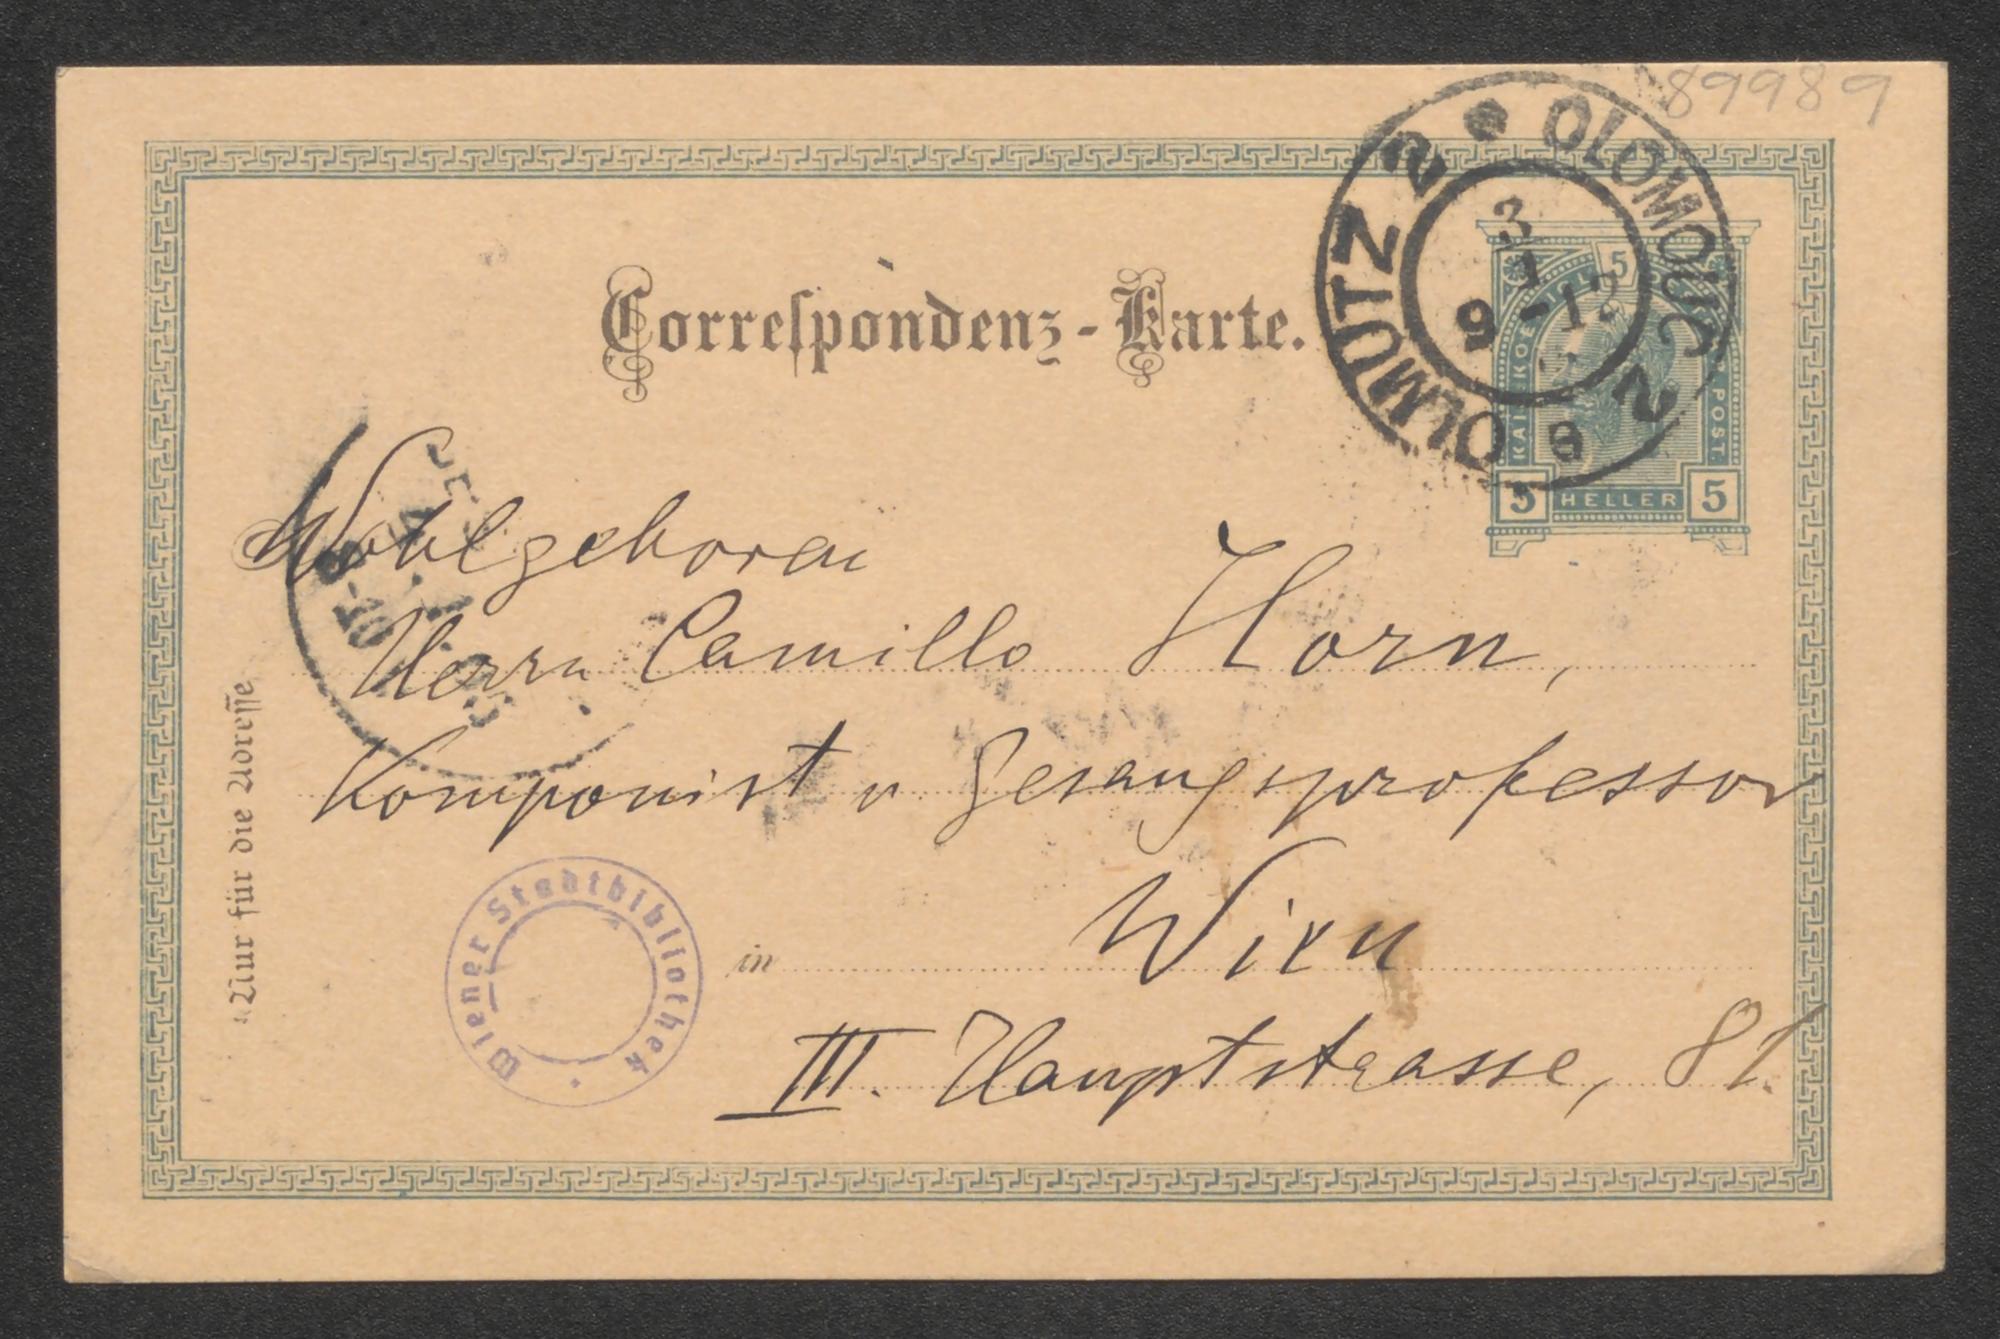 89989
OLMÜTZ 2 • OLOMOUC 2
3
1
9-12
8
5
KAIS. KOE POST.
5 HELLER 5
Correspondenz-Karte.
Wohlgeboren
Herrn Camillo Horn,
Komponist u Gesangsprofessor
in Wien
III. Hauptstrasse, 81.
Nur für die Adresse
Wiener Stadtbibliothek
8-10